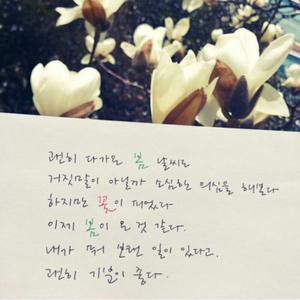 괜히 다가오 봄 날씨도
거짓말이 아닐까 소심한 의심을 해본다
하지만 꽃이 피었다
이제 봄이 온 것 같다.
내가 뭐 보탠 일이 있다고.
괜히 기분이 좋다.